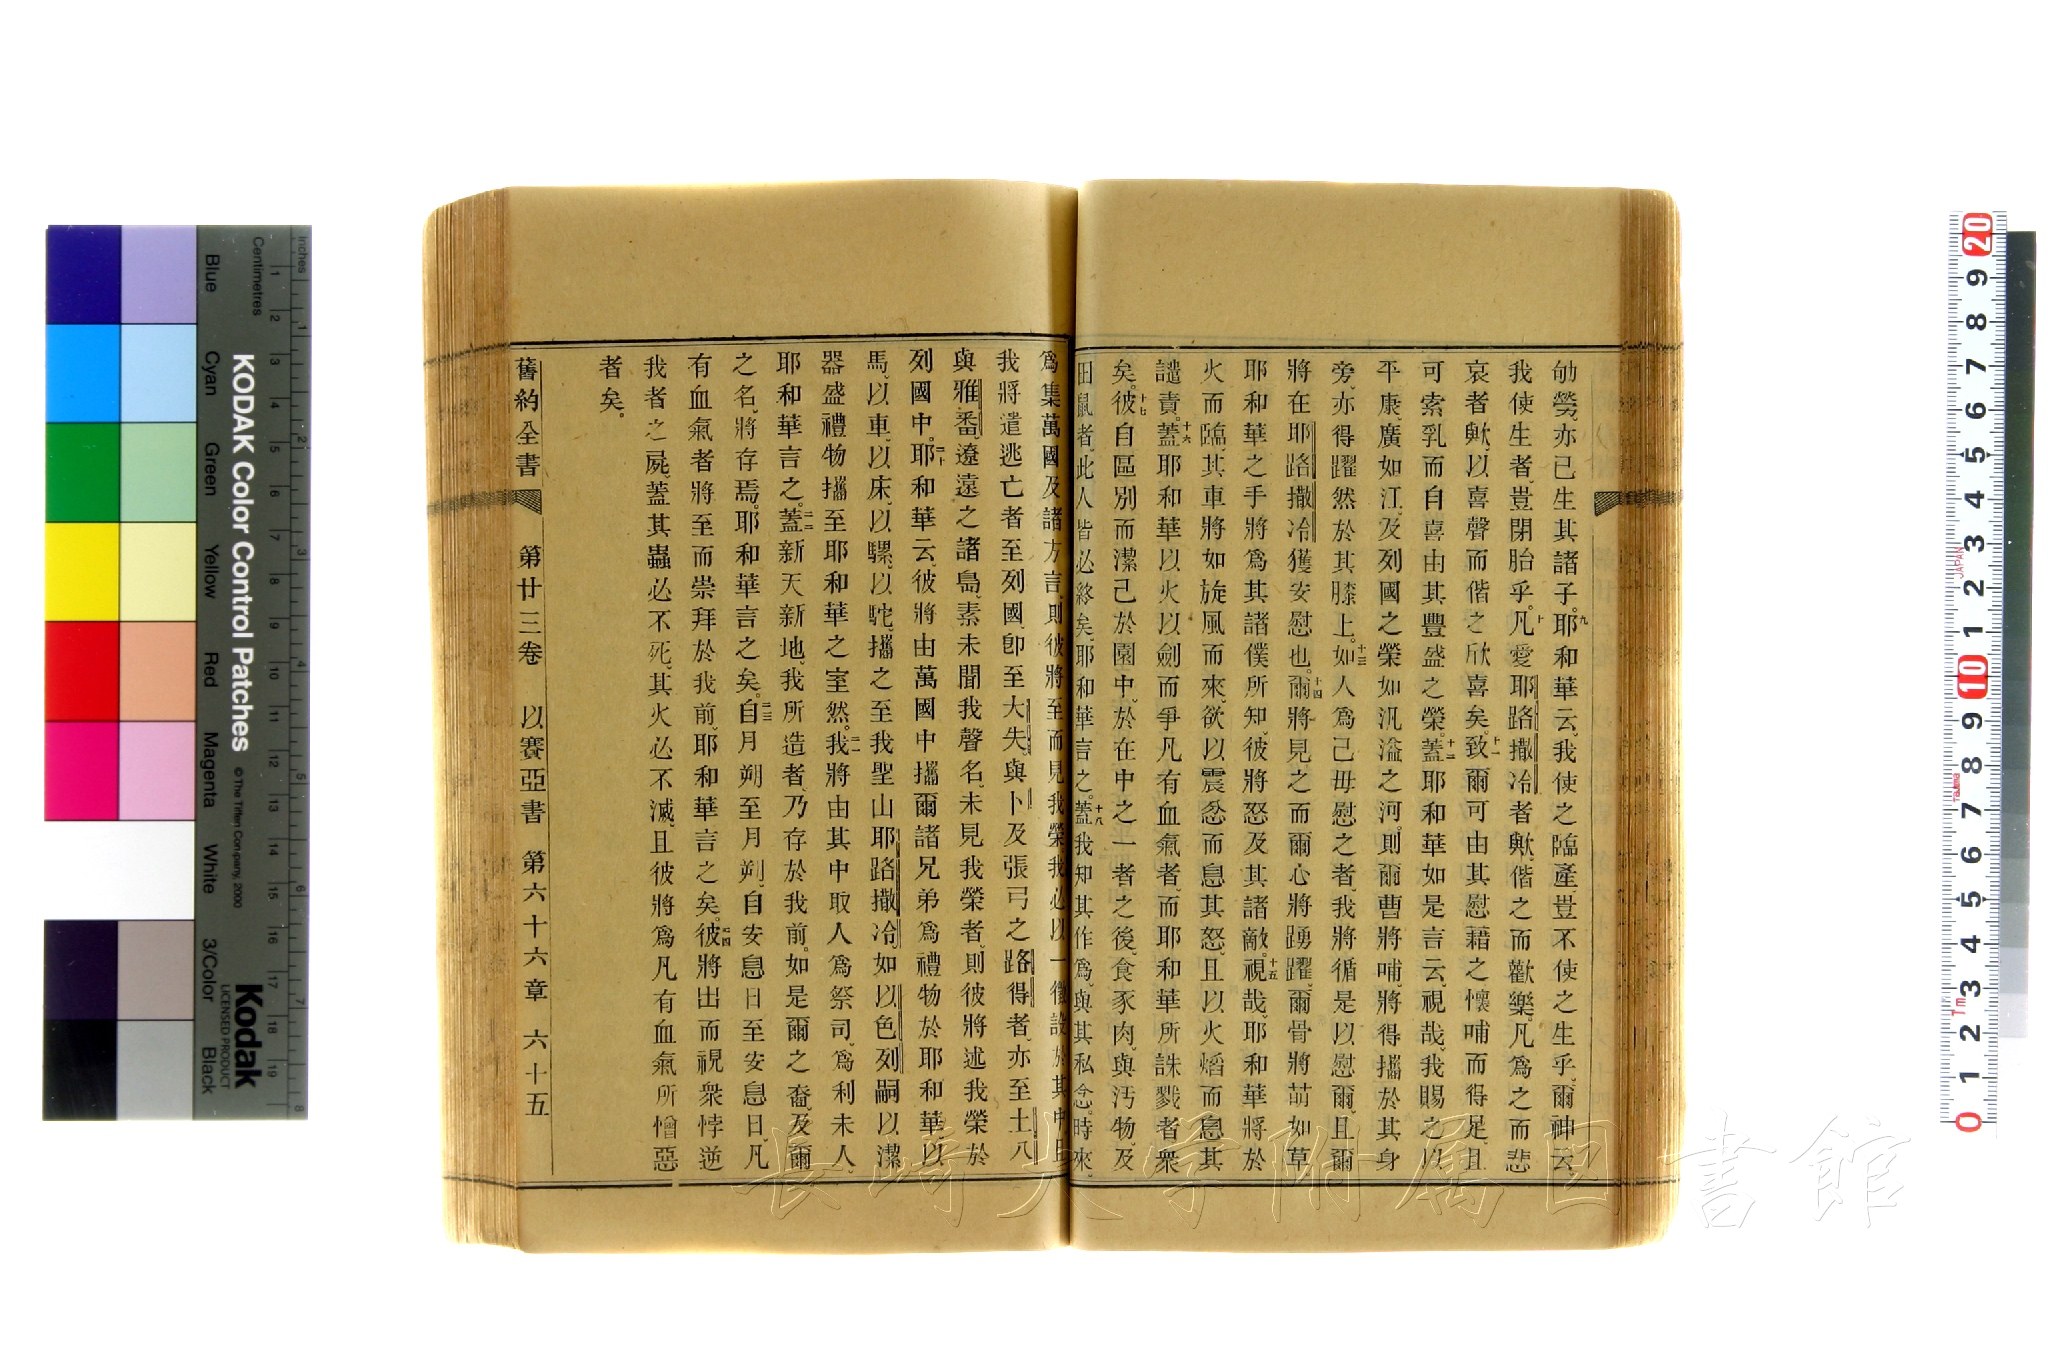 劬勞、亦已生其諸子。九耶和華云、我使之臨產、豈不使之生乎、爾神云、
我使生者、豈閉胎乎。十凡愛耶路撒冷者歟、偕之而歡樂。凡爲之而悲
哀者歟、以喜聲而偕之欣喜矣。十一致爾可由其慰藉之懷哺而得足、且
可索乳而自喜由其豐盛之榮。十二蓋耶和華如是言云、視哉、我賜之以
平康、廣如江、及列國之榮如汎溢之河。則爾曹將哺、將得攜於其身
旁、亦得躍然於其膝上。十三如人爲己母慰之者、我將循是以慰爾、且爾
將在耶路撒冷獲安慰也。十四爾將見之而爾心將踴躍、爾骨將萌如草、
耶和華之手將爲其諸僕所知、彼將怒及其諸敵。十五視哉、耶和華將於
火而臨、其車將如旋風而來、欲以震忿而息其怒、且以火熖而息其
譴責。十六蓋耶和華以火以劍而爭凡有血氣者、而耶和華所誅戮者衆
矣。十七彼自區別而潔己於園中、於在中之一者之後、食豕肉、與汚物、及
田鼠者、此人皆必終矣、耶和華言之。十八蓋我知其作爲、與其私念。時來、
爲集萬國及諸方言、則彼將至而見我榮、我必以一徵設於其中、且
我將遣逃亡者至列國、卽至大失、與卜及張弓之路得者、亦至土八
與雅番、遼遠之諸島、素未聞我聲名、未見我榮者、則彼將述我榮於
列國中。二十耶和華云、彼將由萬國中攜爾諸兄弟爲禮物於耶和華、以
馬、以車、以床、以騾、以駝、攜之至我聖山耶路撒冷、如以色列嗣以潔
器盛禮物攜至耶和華之室然。二一我將由其中取人爲祭司、爲利未人、
耶和華言之。二二蓋新天新地、我所造者、乃存於我前。如是爾之裔、及爾
之名、將存焉。耶和華言之矣。二三自月朔至月朔、自安息日至安息日、凡
有血氣者將至而崇拜於我前、耶和華言之矣。二四彼將出而視衆悖逆
我者之屍、蓋其蟲必不死、其火必不滅、且彼將爲凡有血氣所憎惡
者矣。
舊約全書 第廿三卷 以賽亞書 第六十六章 六十五
長崎大学附属図書館
KODAK Color Control Patches
© The Tiffen Company, 2000
Kodak
LICENSED PRODUCT
Inches
Centimetres
Blue
Cyan
Green
Yellow
Red
Magenta
White
3/Color
Black